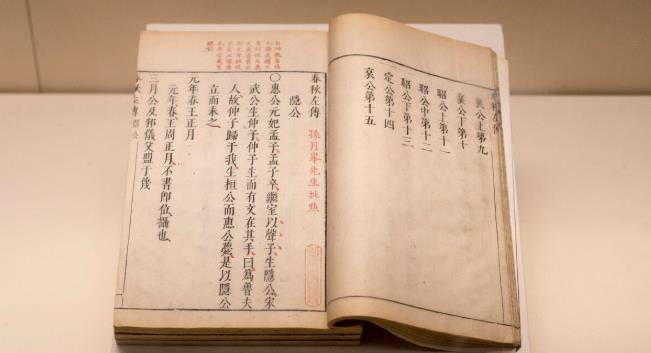 襄公上第九
襄公下第十
昭公上第十一
昭公中第十二
昭公下第十三
定公第十四
哀公第十五
春秋左傳
孫月峯先生批點
隱公
○惠公元妃孟子孟子卒繼室以聲子生隱公宋
武公生仲子仲子生而有文在其手曰為魯夫
人故仲子歸于我生桓公而惠公薨是以隱公
立而奉之
元年春王正月
元年春王周正月不書卽位攝也
三月公及邾儀父盟于蔑